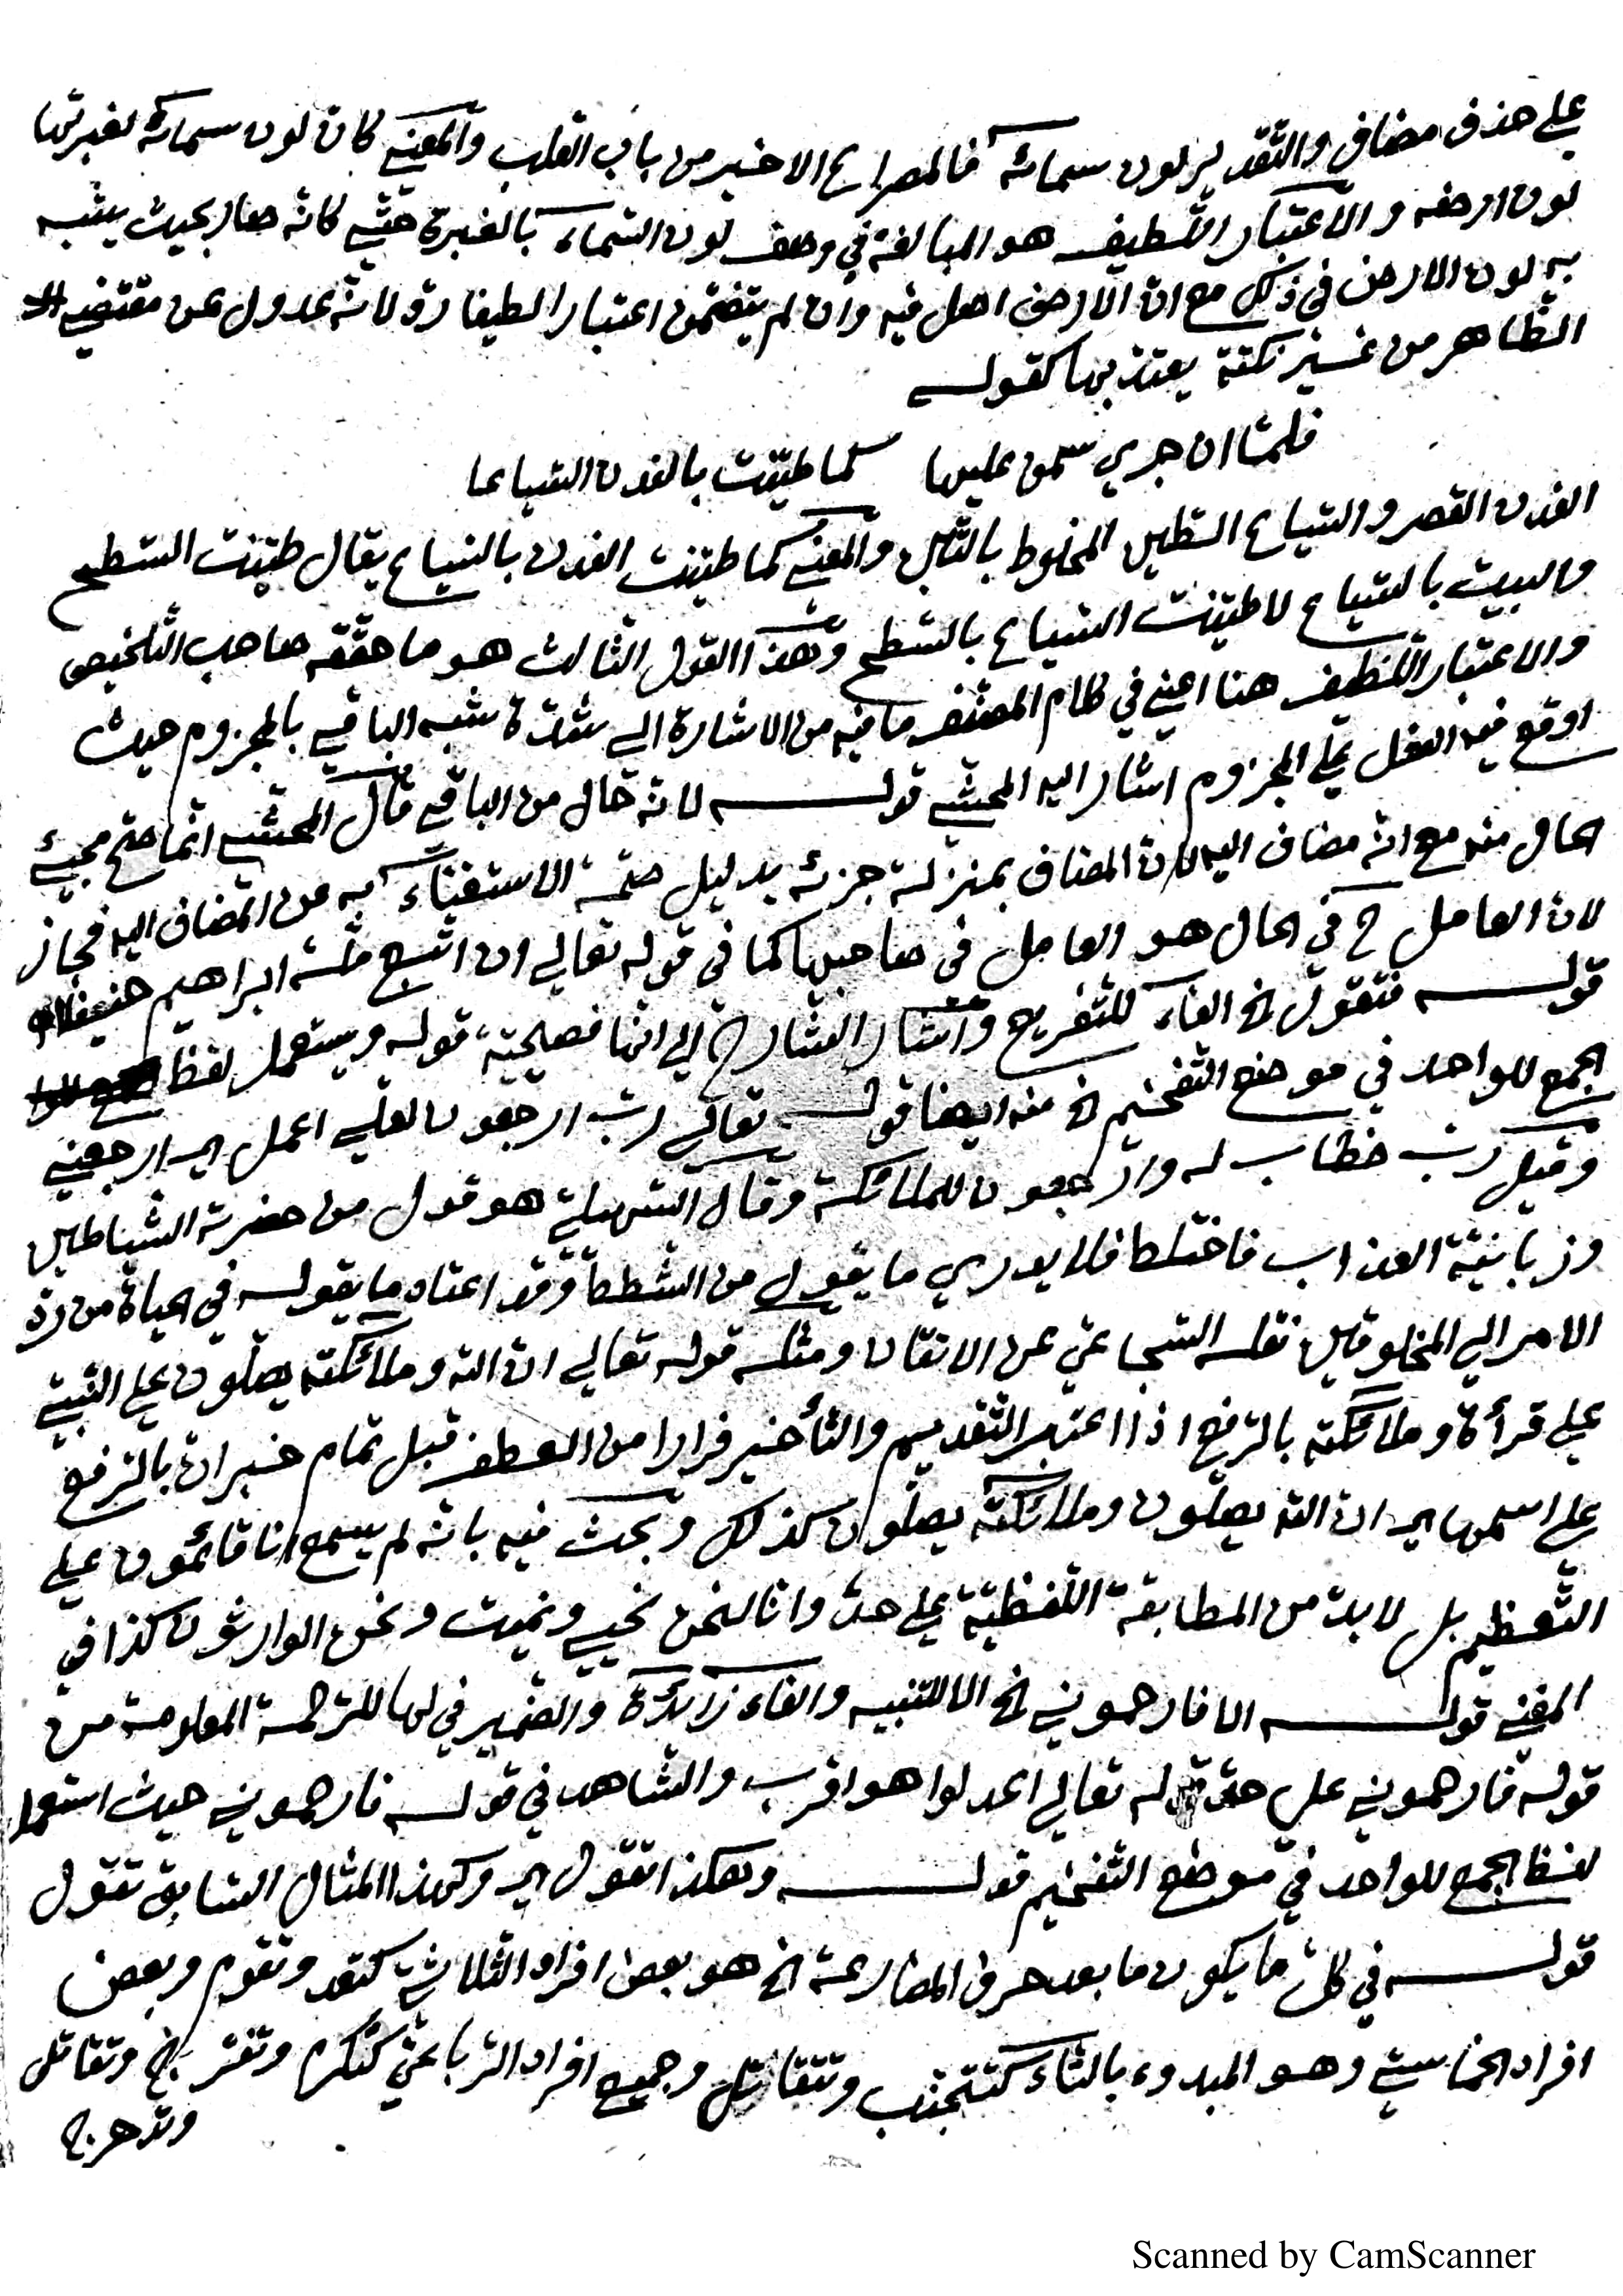 على حذف مضاف والتقدير لون سمائه فالمصراع الاخير من باب القلب والمعنى كان لون سمائه لغبرتها
لون ارضه والاعتبار اللطيف هو المبالغة في وصف لون السماء بالغبرة حتى كانه صار بحيث يشبه
به لون الارض في ذلك مع ان الارض اصل فيه وان لم يتضمن اعتبارا لطيفا رد لانه عدول عن مقتضى
الظاهر من غير نكتة يعتد بها كقوله
فلما ان جرى سمن عليها كما طينت بالفدن السياعا
الفدن القصر والسياع الطين المخلوط بالتبن والمعنى كما طينت الفدن بالسياع يقال طينت السطح
والبيت بالسياع لا طينت السياع بالسطح وهذا القول الثالث هو ما حققه صاحب التلخيص
والاعتبار اللطيف هنا اعني في كلام المصنف ما فيه من الاشارة الى شدة شبه الباقي بالمجزوم حيث
اوقع فيه الفعل على المجزوم اشار اليه المحشي قوله لانه حال من الباقي قال المحشي انما صح مجيئ
الحال منه مع انه مضاف اليه لان المضاف بمنزلة جزئه بدليل صحة الاستغناء به عن المضاف اليه فجاز
لان العامل ح في الحال هو العامل في صاحبها كما في قوله تعالى ان اتبع ملة ابراهيم حنيفا
قوله فتقول الخ الفاء للتفريع واشار الشارح الى انها فصيحية قوله ويستعمل لفظ
الجمع للواحد في موضع التفخيم الخ منه ايضا قوله تعالى رب ارجعون لعلي اعمل اي ارجعني
وقيل رب خطاب له وارجعون للملائكة وقال السهيلي هو قول من حضرته الشياطين
وزبانية العذاب فاختلط فلا يدري ما يقول من الشطط وقد اعتاد ما يقوله في الحياة من رد
الامر الى المخلوقين نقله السجاعي عن الاتقان ومثله قوله تعالى ان الله وملائكته يصلون على النبي
على قرأة وملائكته بالرفع اذا اعتبر التقديم والتأخير فرارا من العطف قبل تمام خبر ان بالرفع
على اسمها اي ان الله يصلون وملائكته يصلون كذلك وبحث فيه بانه لم يسمع انا قائمون على
التعظيم بل لا بد من المطابقة اللفظية على حد وانا لنحن نحيي ونميت ونحن الوارثون كذا في
المغني قوله الا فارحموني الخ الا للتنبيه والفاء زائدة والضمير في لها للرحمة المعلومة من
قوله فارحموني على حد قوله تعالى اعدلوا هو اقرب والشاهد في قوله فارحموني حيث استعمل
لفظ الجمع للواحد في موضع التفخيم قوله وهكذا تقول اي وكهذا المثال السابق تقول
قوله في كل ما يكون ما بعد حرف المضارعة الخ هو بعض افراد الثلاثي كتعد وتقوم وبعض
افراد الخماسي وهو المبدوء بالتاء كتتجنب وتتقاتل وجميع افراد الرباعي كتكرم وتفرح وتقاتل
وتدحرج
Scanned by CamScanner